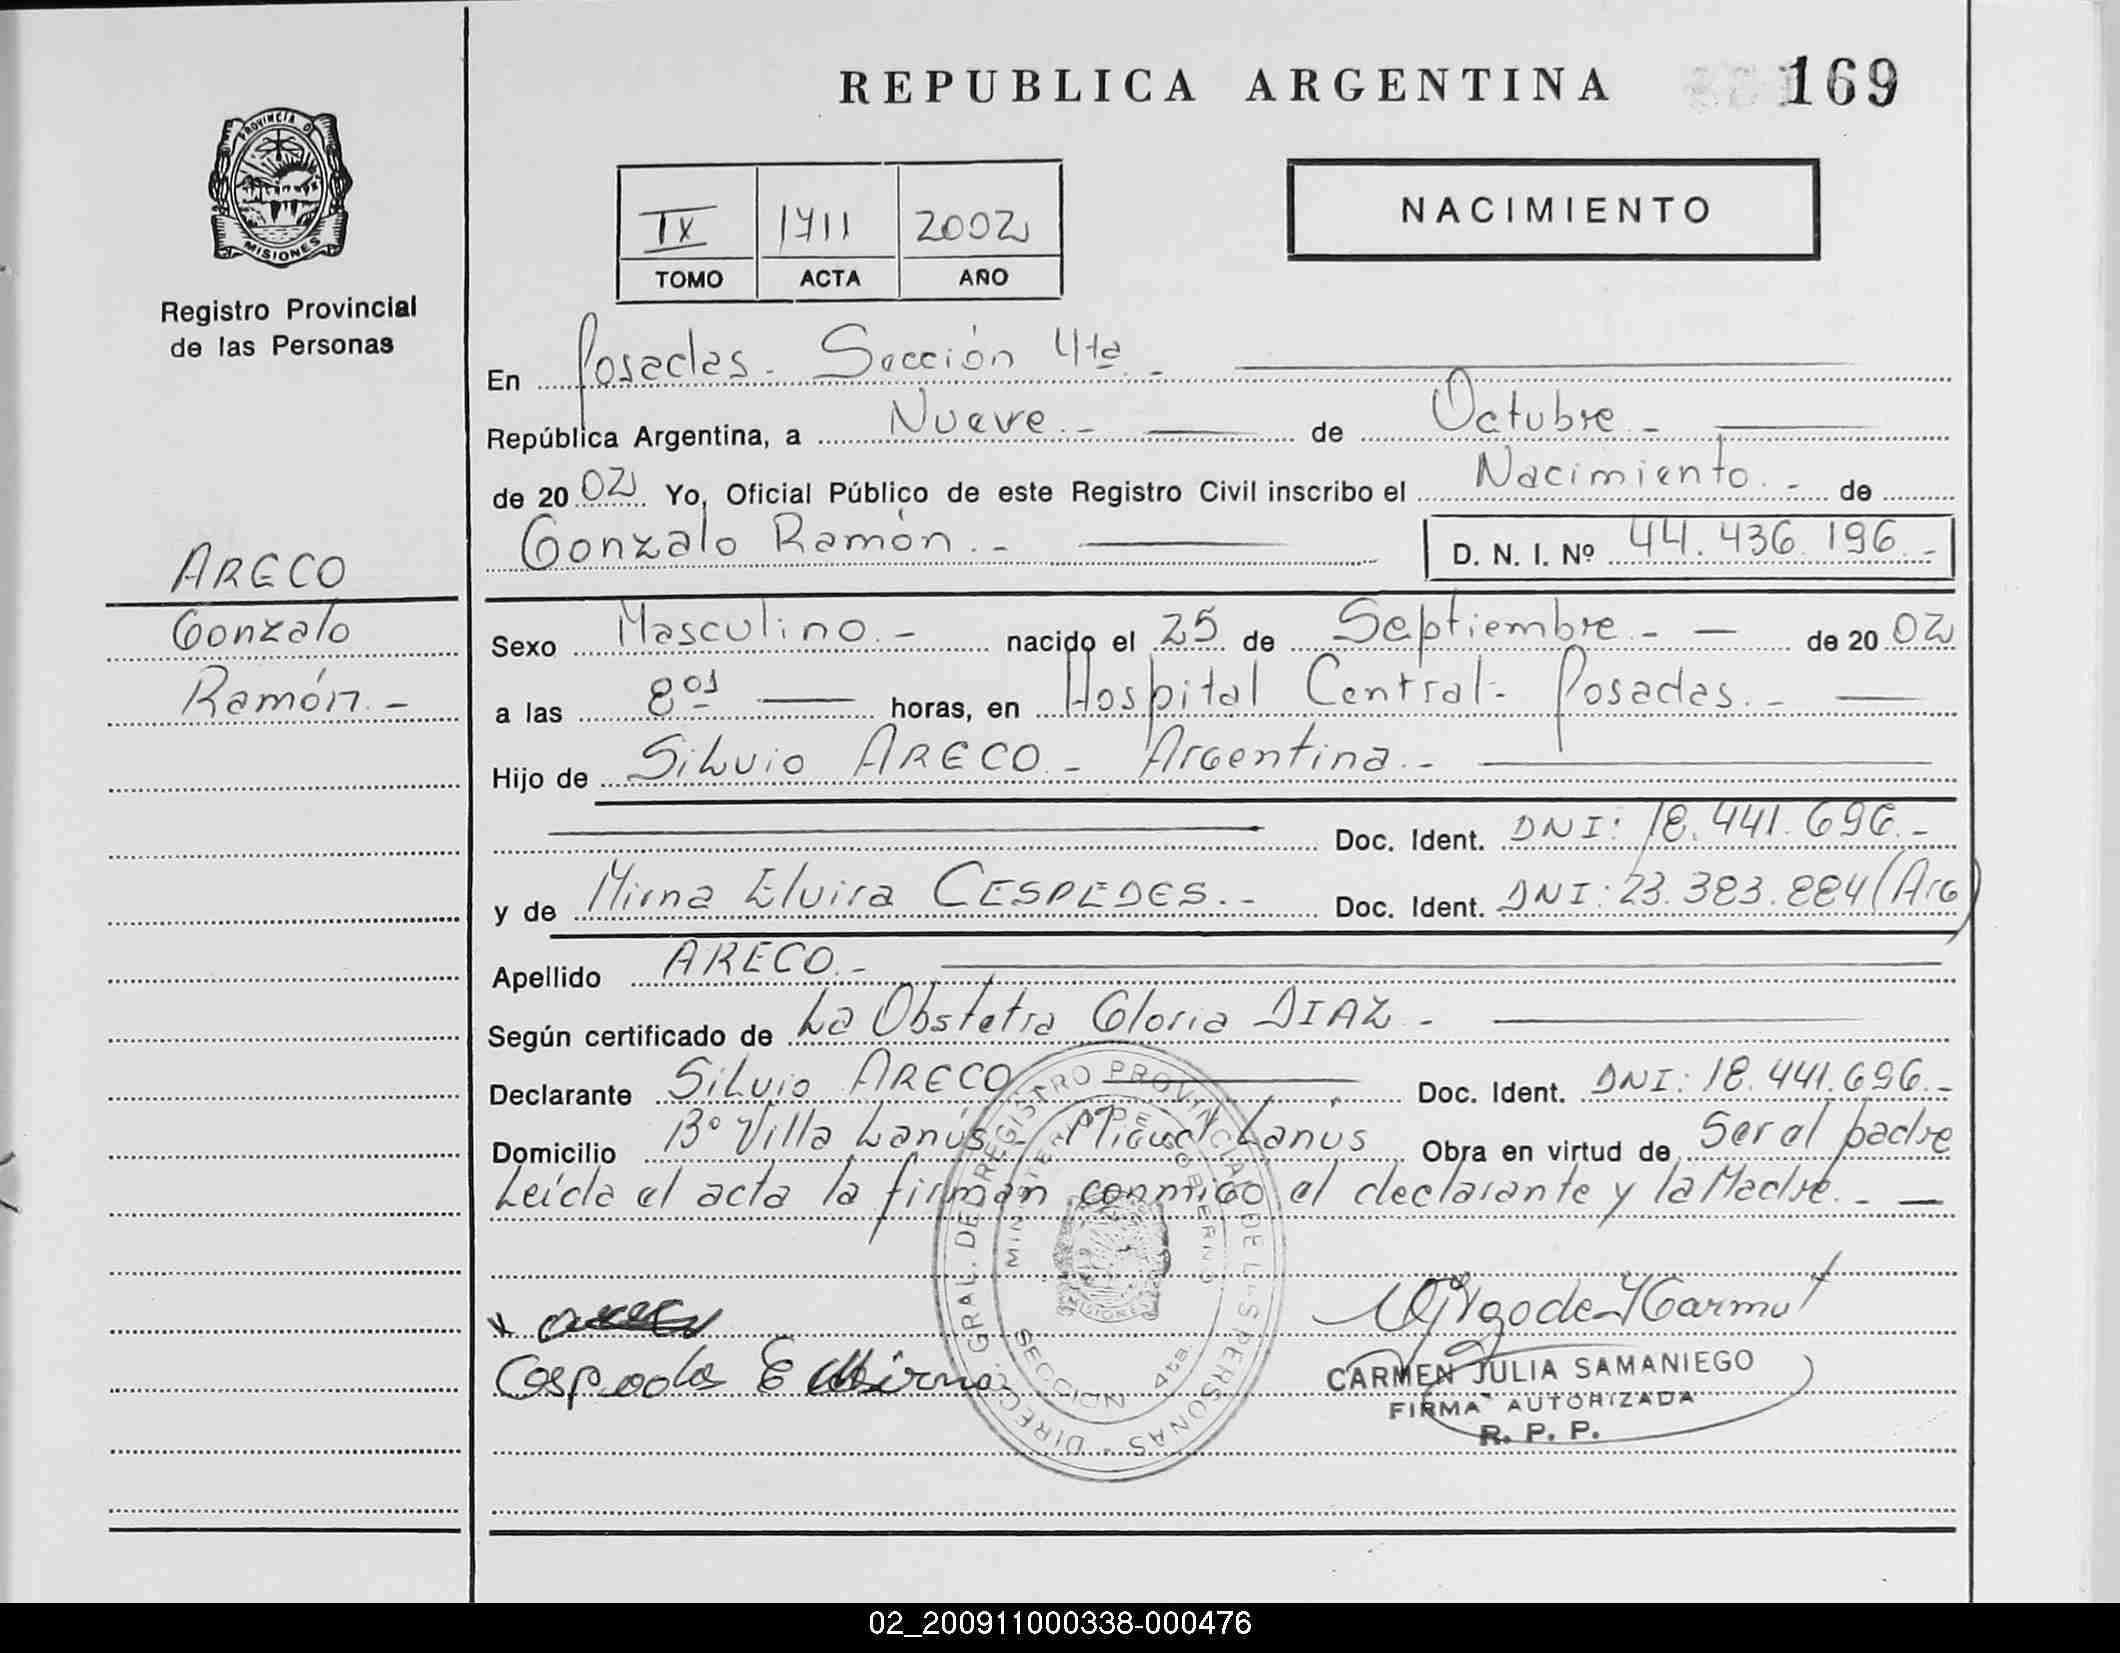 REPUBLICA ARGENTINA 169
PROVINCIA D
MISIONES
Registro Provincial
de las Personas
IX 1711 2002
TOMO ACTA AÑO
NACIMIENTO
En Posadas - Sección 4ta. -
República Argentina, a Nueve. - de Octubre -
de 20 02 Yo, Oficial Público de este Registro Civil inscribo el Nacimiento. - de
Gonzalo Ramón. - D. N. I. Nº 44.436.196. -
ARECO
Gonzalo
Ramón. -
Sexo Masculino. - nacido el 25 de Septiembre. - de 20 02
a las 8os horas, en Hospital Central - Posadas. -
Hijo de Silvio ARECO - Argentina. -
Doc. Ident. DNI: 18.441.696. -
y de Mirna Elvira CESPEDES. - Doc. Ident. DNI: 23.383.884 (Arg)
Apellido ARECO. -
Según certificado de La Obstetra Gloria DIAZ -
Declarante Silvio ARECO Doc. Ident. DNI: 18.441.696. -
Domicilio Bº Villa Lanús - Miguel Lanús Obra en virtud de Ser el padre
Leída el acta la firman conmigo el declarante y la Madre. -
DIREC. GRAL. DEL REGISTRO PROVINCIAL DE L-S PERSONAS
MINISTERIO DE GOBIERNO
MISIONES
SECCION 4ta.
Cespedes E Mirna
CARMEN JULIA SAMANIEGO
FIRMA AUTORIZADA
R. P. P.
02_200911000338-000476